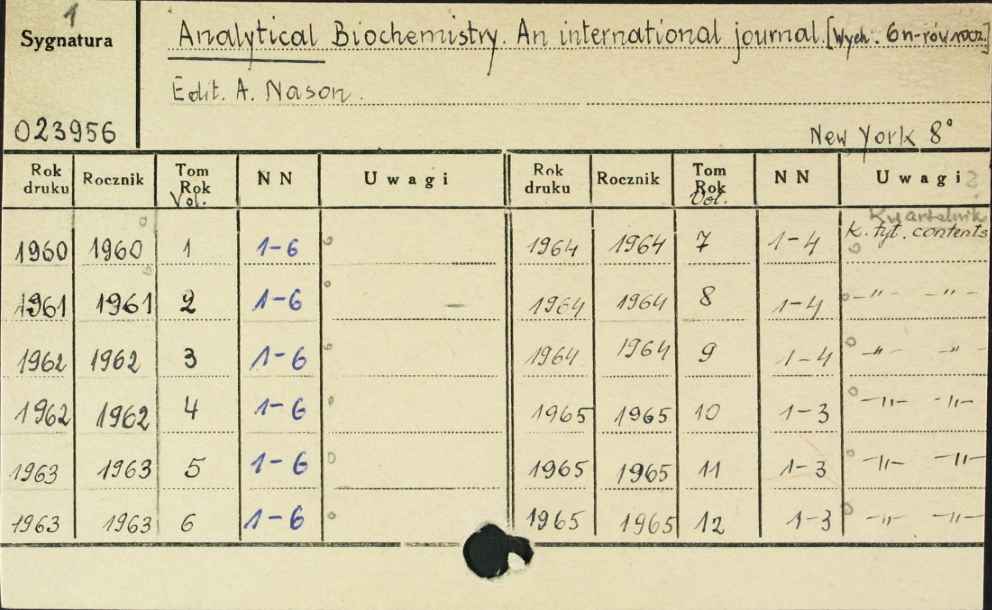 1
Sygnatura
Analytical Biochemistry. An international journal. [Wych. 6 n-rów rocz.]
Edit. A. Nason.
023956
New York 8°
Rok druku Rocznik Tom Rok Vol. NN Uwagi Rok druku Rocznik Tom Rok Vol. NN Uwagi ?
Kwartalnik
1960 1960 1 1-6 1964 1964 7 1-4 k. tyt. contents
1961 1961 2 1-6 1964 1964 8 1-4 -"- -"-
1962 1962 3 1-6 1964 1964 9 1-4 -"- -"-
1962 1962 4 1-6 1965 1965 10 1-3 -"- -"-
1963 1963 5 1-6 1965 1965 11 1-3 -"- -"-
1963 1963 6 1-6 1965 1965 12 1-3 -"- -"-